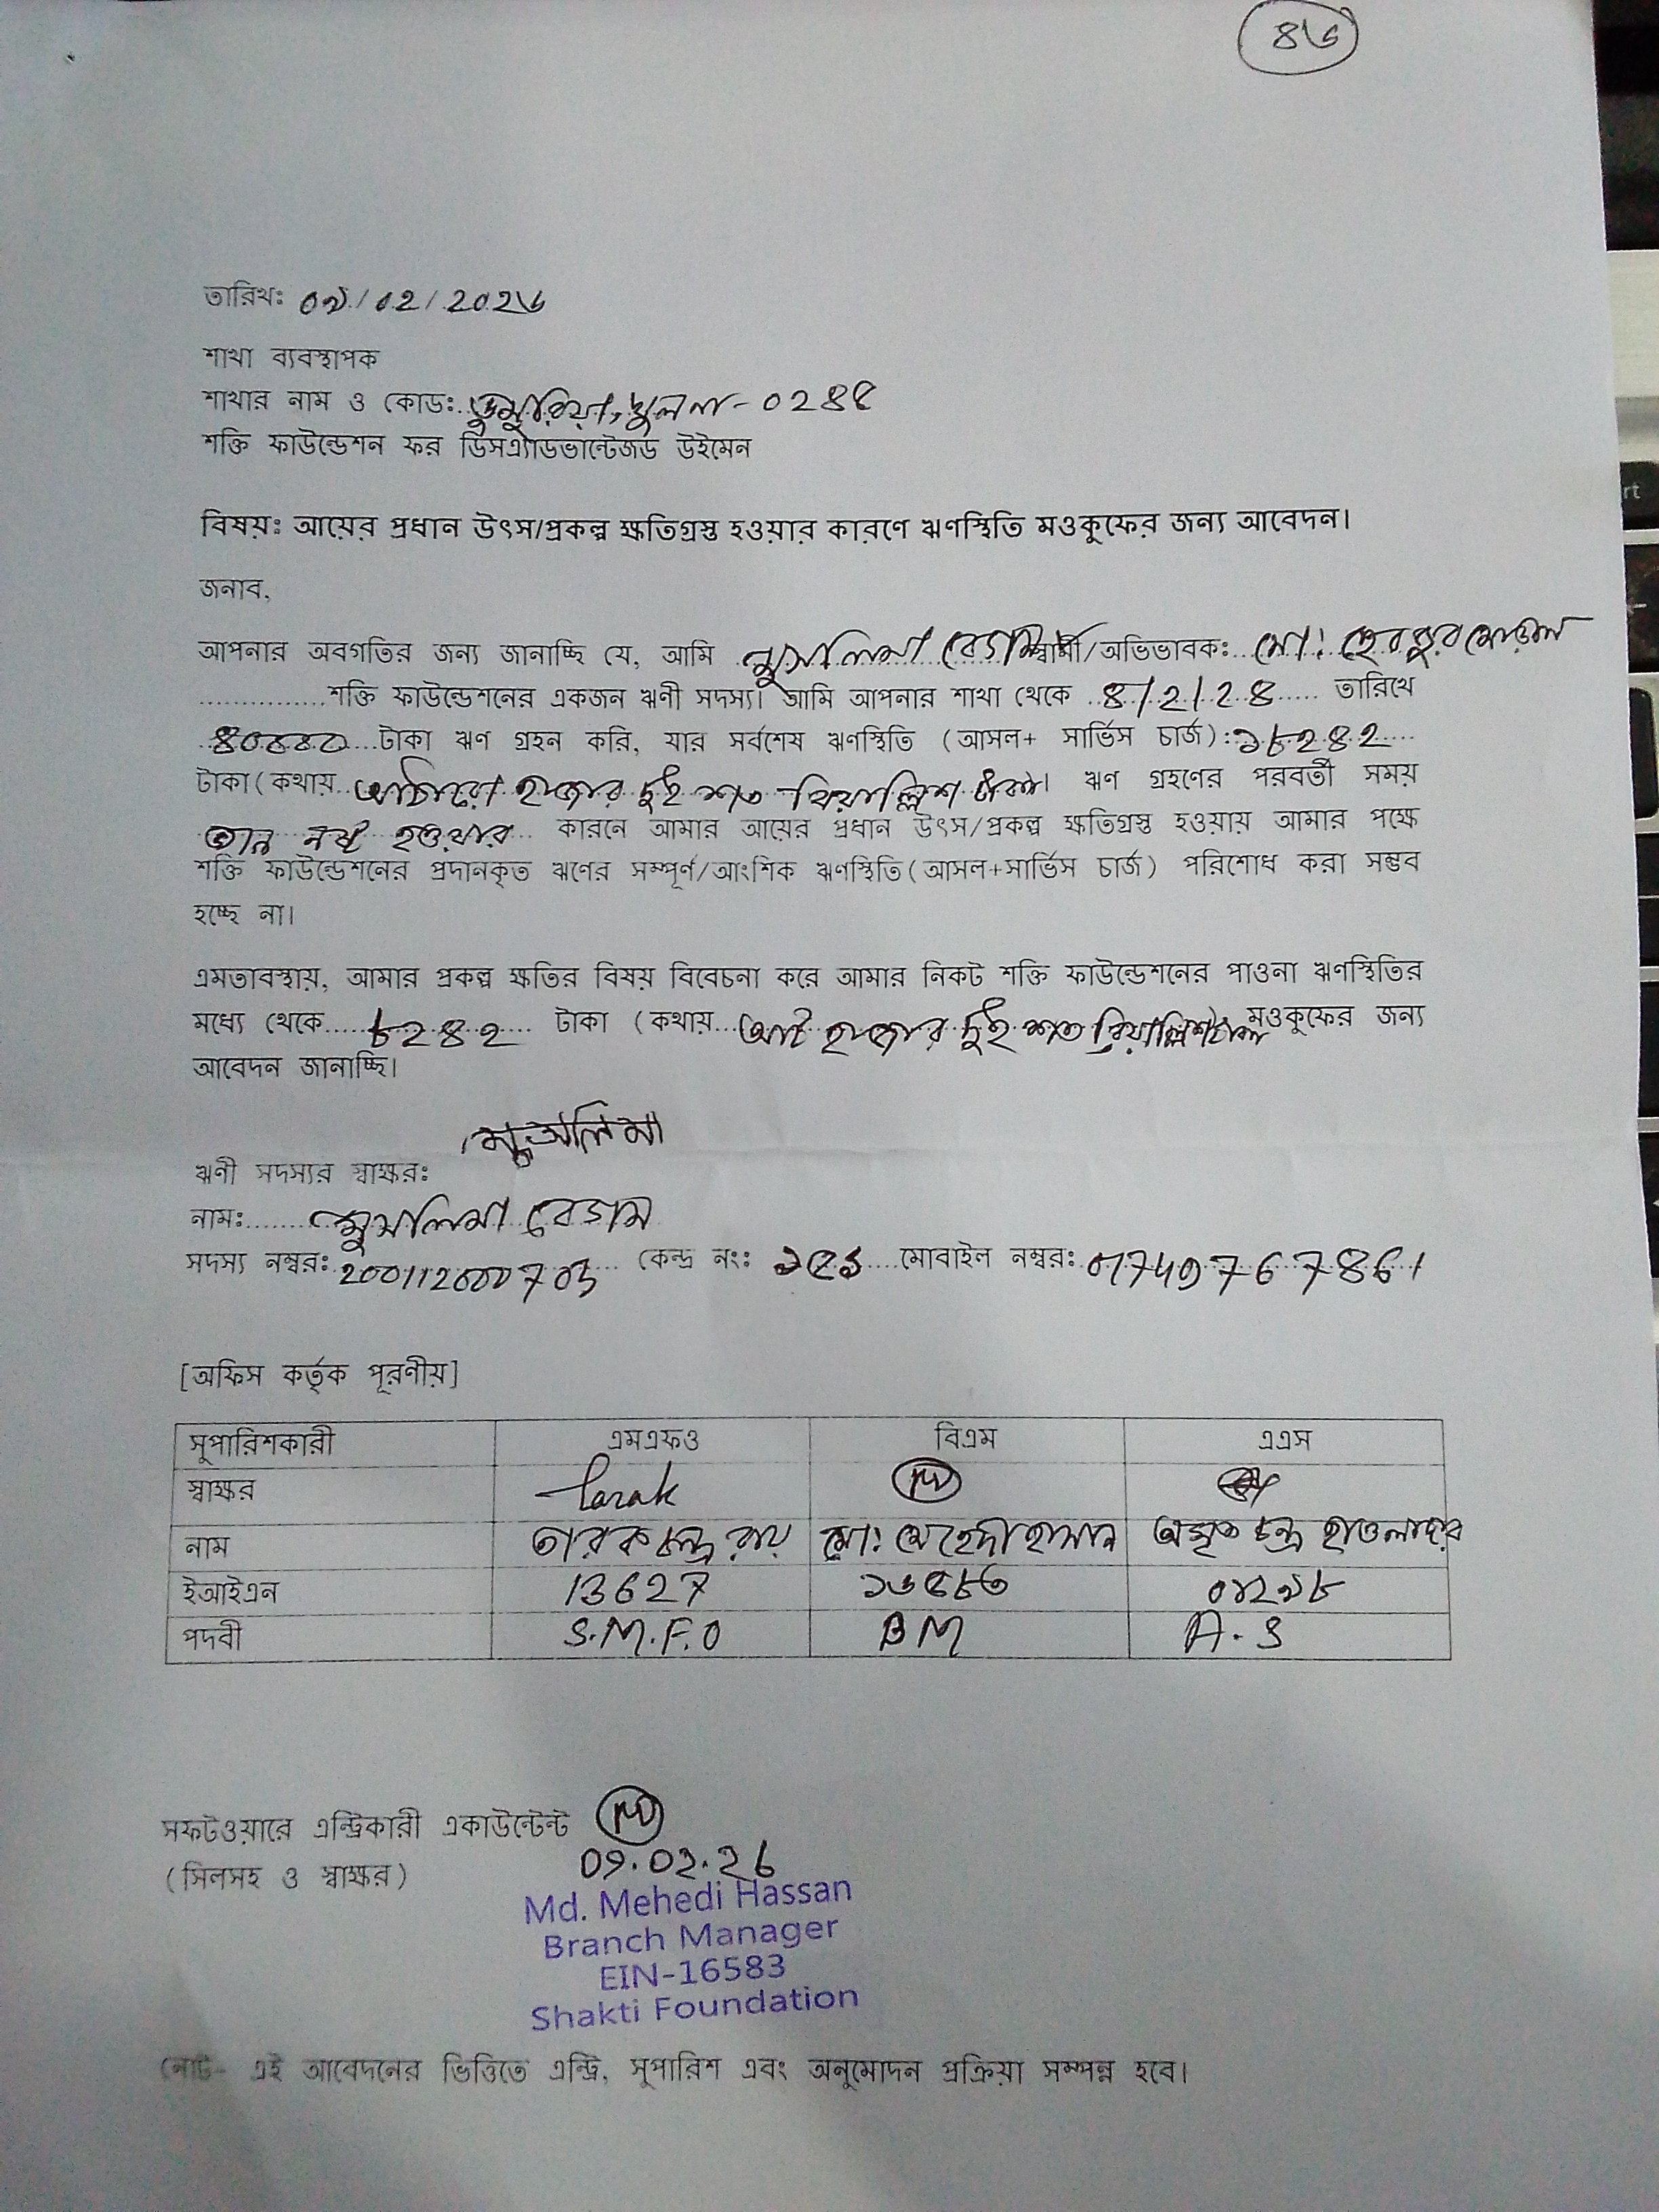 ৪৬
তারিখঃ ০৯/০২/২০২৬
শাখা ব্যবস্থাপক
শাখার নাম ও কোডঃ ডুমুরিয়া, খুলনা - ০২৪৪
শক্তি ফাউন্ডেশন ফর ডিসএ্যাডভান্টেজড উইমেন
বিষয়ঃ আয়ের প্রধান উৎস/প্রকল্প ক্ষতিগ্রস্ত হওয়ার কারণে ঋণস্থিতি মওকুফের জন্য আবেদন।
জনাব,
আপনার অবগতির জন্য জানাচ্ছি যে, আমি মুসলিমা বেগম স্বামী/অভিভাবকঃ মো:
শক্তি ফাউন্ডেশনের একজন ঋণী সদস্য। আমি আপনার শাখা থেকে ৪/২/২৪ তারিখে
টাকা ঋণ গ্রহন করি, যার সর্বশেষ ঋণস্থিতি (আসল+ সার্ভিস চার্জ):১৮২৪২
টাকা(কথায় আঠারো হাজার দুই শত বিয়াল্লিশ টাকা। ঋণ গ্রহণের পরবর্তী সময়
নষ্ট হওয়ার কারনে আমার আয়ের প্রধান উৎস/প্রকল্প ক্ষতিগ্রস্ত হওয়ায় আমার পক্ষে
শক্তি ফাউন্ডেশনের প্রদানকৃত ঋণের সম্পূর্ণ/আংশিক ঋণস্থিতি(আসল+সার্ভিস চার্জ) পরিশোধ করা সম্ভব
হচ্ছে না।
এমতাবস্থায়, আমার প্রকল্প ক্ষতির বিষয় বিবেচনা করে আমার নিকট শক্তি ফাউন্ডেশনের পাওনা ঋণস্থিতির
মধ্যে থেকে ৮২৪২ টাকা (কথায় আট হাজার দুই শত বিয়াল্লিশ টাকা মওকুফের জন্য
আবেদন জানাচ্ছি।
মুসলিমা
ঋণী সদস্যর স্বাক্ষরঃ
নামঃ মুসলিমা বেগম
সদস্য নম্বরঃ কেন্দ্র নংঃ ১৫১ মোবাইল নম্বরঃ 01749767861
[অফিস কর্তৃক পূরণীয়]
সুপারিশকারী এমএফও বিএম এএস
স্বাক্ষর Tarak
নাম তারক চন্দ্র রায় মো: মেহেদী হাসান অমৃত চন্দ্র হাওলাদার
ইআইএন 13627 ১৬৫৮৩
পদবী S.M.F.O BM A.S
সফটওয়ারে এন্ট্রিকারী একাউন্টেন্ট
(সিলসহ ও স্বাক্ষর) 09.02.26
Md. Mehedi Hassan
Branch Manager
EIN-16583
Shakti Foundation
নোট- এই আবেদনের ভিত্তিতে এন্ট্রি, সুপারিশ এবং অনুমোদন প্রক্রিয়া সম্পন্ন হবে।